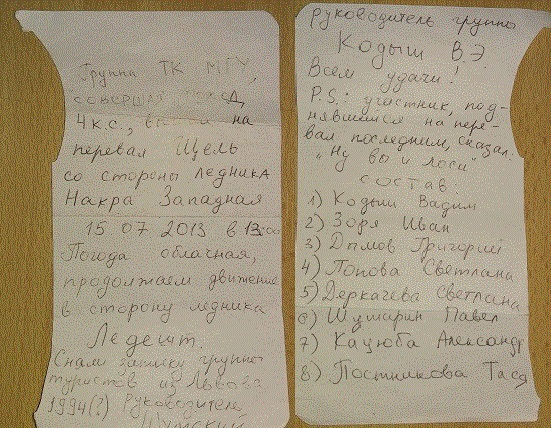 Группа ТК МГУ,
совершая поход,
4 к.с., вышли на
перевал Щель
со стороны ледника
Накра Западная
15 07 2013 в 13:00
Погода облачная,
продолжаем движение
в сторону ледника
Ледешт.
Сняли записку группы
туристов из Львова.
1994(?) Руководитель
руководитель группы
Кодыш В.Э.
Всем удачи!
P.S.: участник, под-
нявшийся на пере-
вал последним, сказал:
"Ну вы и лоси"
состав:
1) Кодыш Вадим
2) Зоря Иван
3) Дымов Григорий
4) Попова Светлана
5) Деркачева Светлана
6) Шушарин Павел
7) Кацюба Александр
8) Постникова Тася